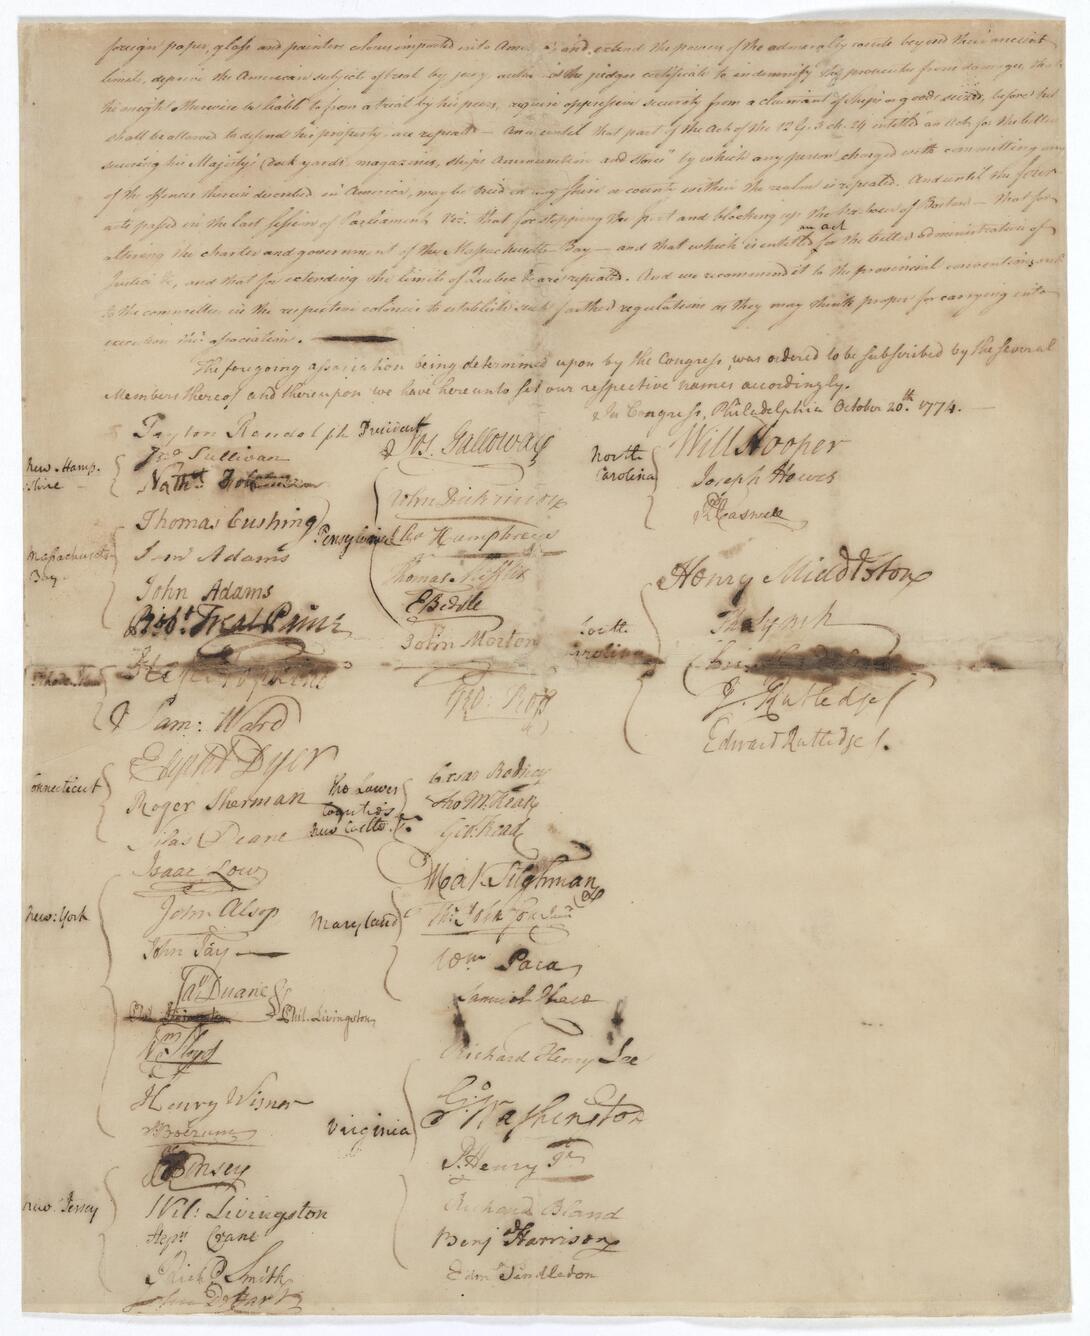 foreign paper, glass and painters colours imported into America and extend the powers of the admiralty courts beyond their ancient
limits, deprive the American subject of trial by jury, authorise the judges certificate to indemnify the prosecutor from damages, that
he might otherwise be liable to from a trial by his peers, require oppressive security from a claimant of ships or goods seized, before he
shall be allowed to defend his property, are repealed - And until that part of the Act of the 12 G. 3 ch. 24 entitled "an act for the better
securing his Majesty's dock yards, magazines, ships ammunition and stores" by which any person charged with committing any
of the offences therein described in America, may be tried in any shire or county within the realm is repealed. And until the four
acts passed in the last session of Parliament viz. that for stopping the port and blocking up the harbour of Boston - that for
altering the charter and government of the Massachusetts Bay - and that which is entitled an act for the better administration of
Justice &c, and that for extending the limits of Quebec &c are repealed. And we recommend it to the provincial conventions, and
to the committees in the respective colonies to establish such farther regulations as they may think proper for carrying into
execution this association.
The foregoing association being determined upon by the Congress, was ordered to be subscribed by the several
Members thereof and thereupon we have hereunto set our respective names accordingly.
In Congress, Philadelphia October 20th. 1774.
Peyton Randolph President
New Hamp.
shire
Jno Sullivan
Nathl. Folsom
Massachusetts
Bay
Thomas Cushing
Sam Adams
John Adams
Robt. Treat Paine
Rhode Island
Step Hopkins
Sam: Ward
Connecticut
Elipht Dyer
Roger Sherman
Silas Deane
New York
Isaac Low
John Alsop
John Jay
Jas Duane
Phil. Livingston
Wm Floyd
Henry Wisner
S Boerum
New Jersey
J Kinsey
Wil: Livingston
Stepn Crane
Richd Smith
John De Hart
Pensylvania
Jos. Galloway
John Dickinson
Cha Humphreys
Thomas Mifflin
E Biddle
John Morton
Geo: Ross
The Lower
Counties
New Castle
Cæsar Rodney
Tho M:Kean
Geo: Read
Maryland
Mat Tilghman
Ths Johnson Junr
Wm Paca
Samuel Chase
Virginia
Richard Henry Lee
Go Washington
P. Henry Jr
Richard Bland
Benja Harrison
Edmd Pendleton
North
Carolina
Will Hooper
Joseph Hewes
Rd Caswell
South
Carolina
Henry Middleton
Tho Lynch
Chris Gadsden
J. Rutledge
Edward Rutledge